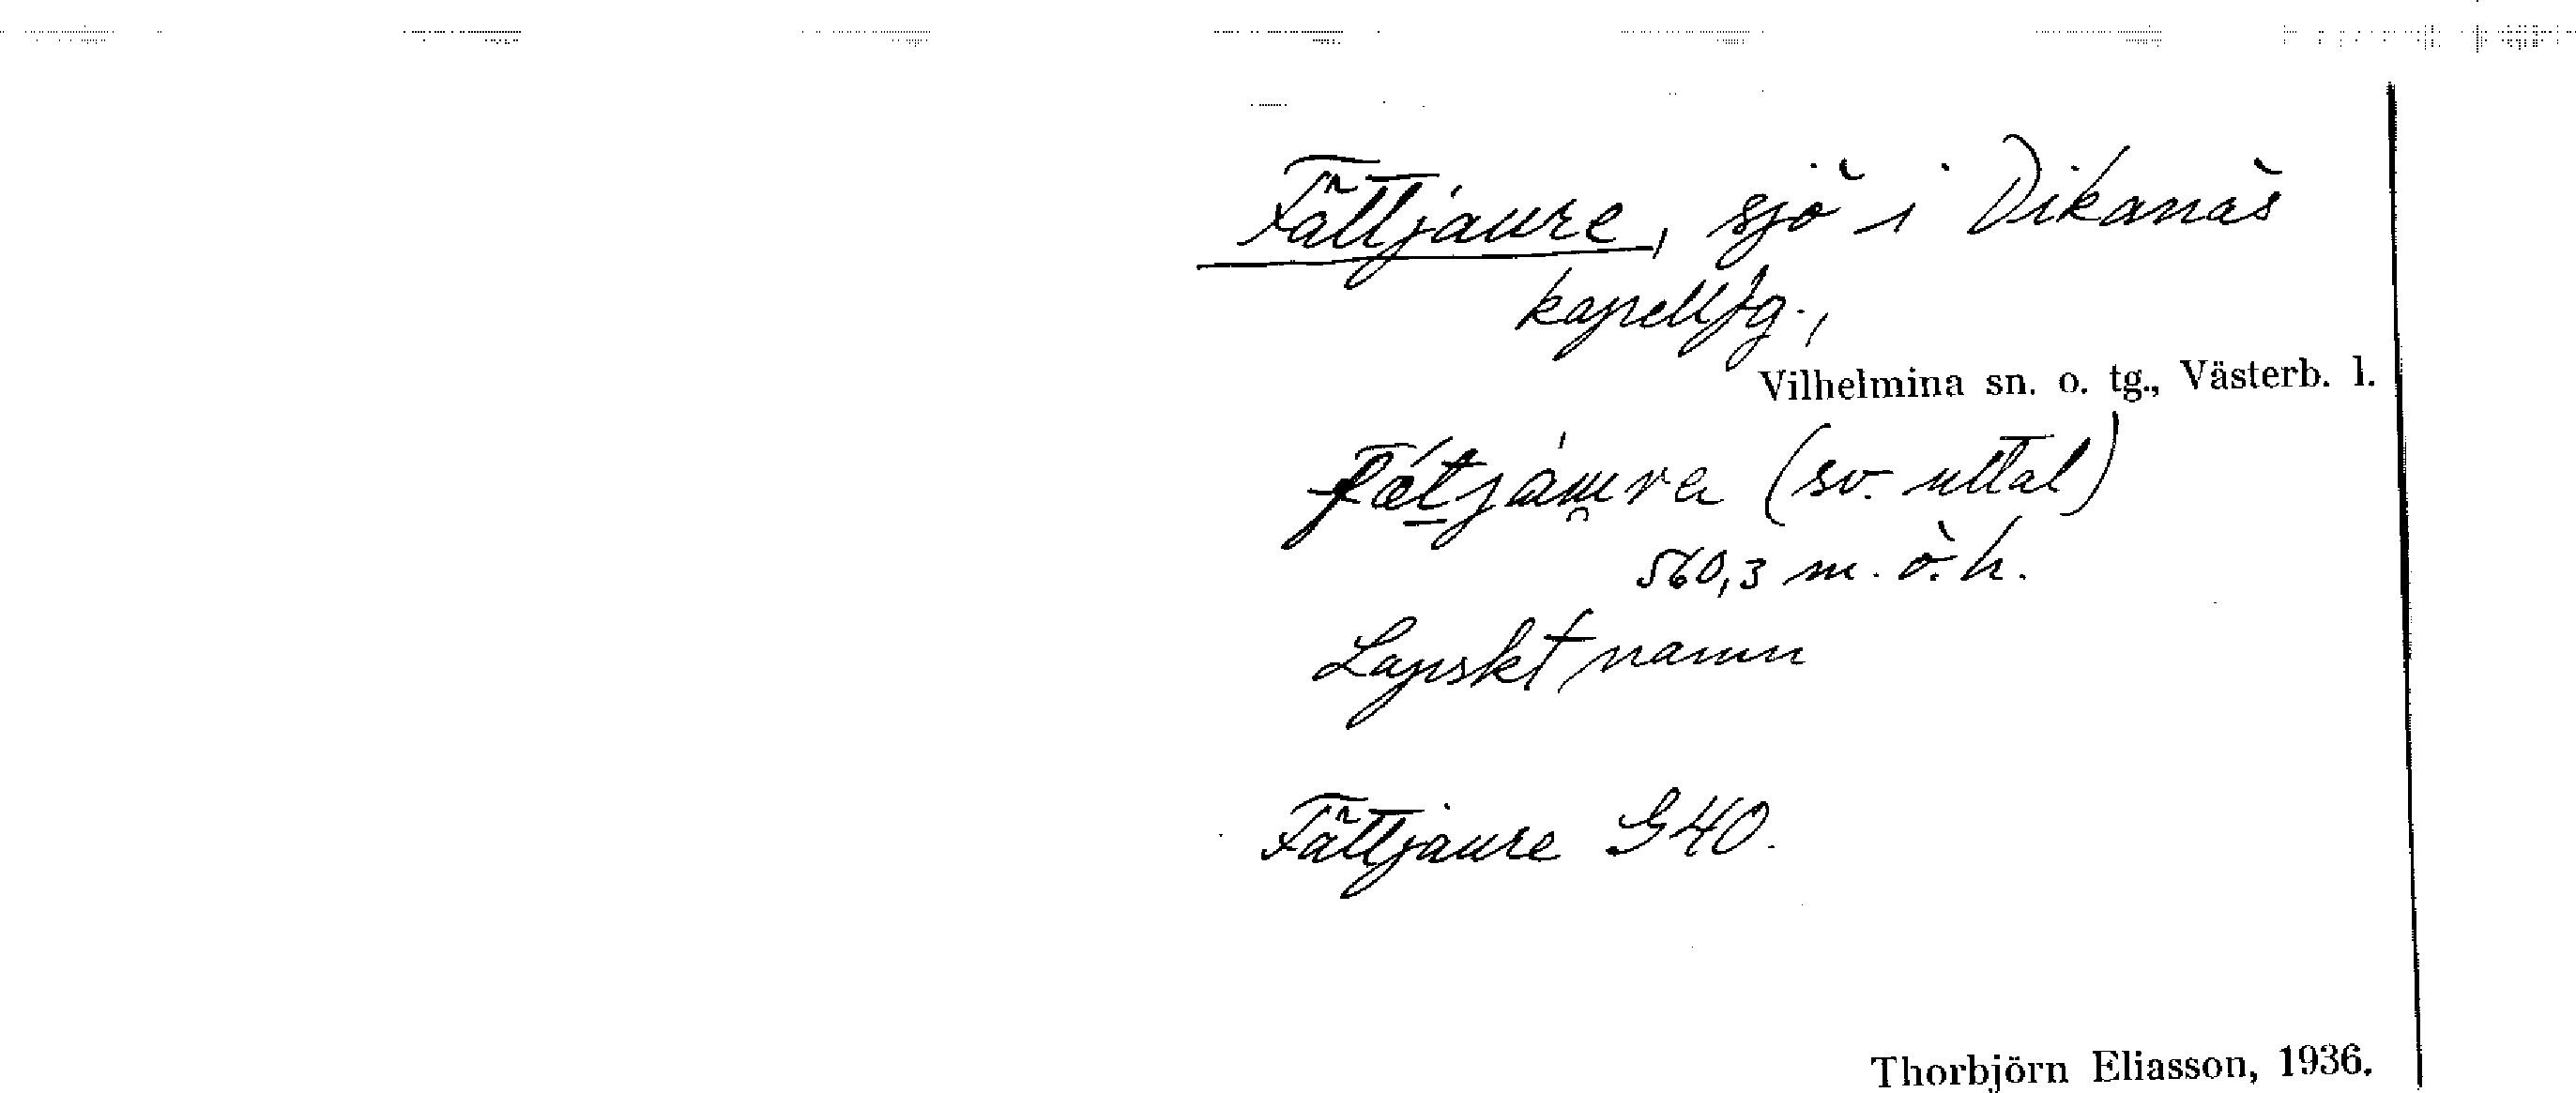 Fättjaure, sjö i Dikanäs
kapellfg.,
Vilhelmina sn. o. tg., Västerb. l.
(sv. uttal)
560,3 m. ö. h.
Lapskt namn
Fättjaure G40.
Thorbjörn Eliasson, 1936.